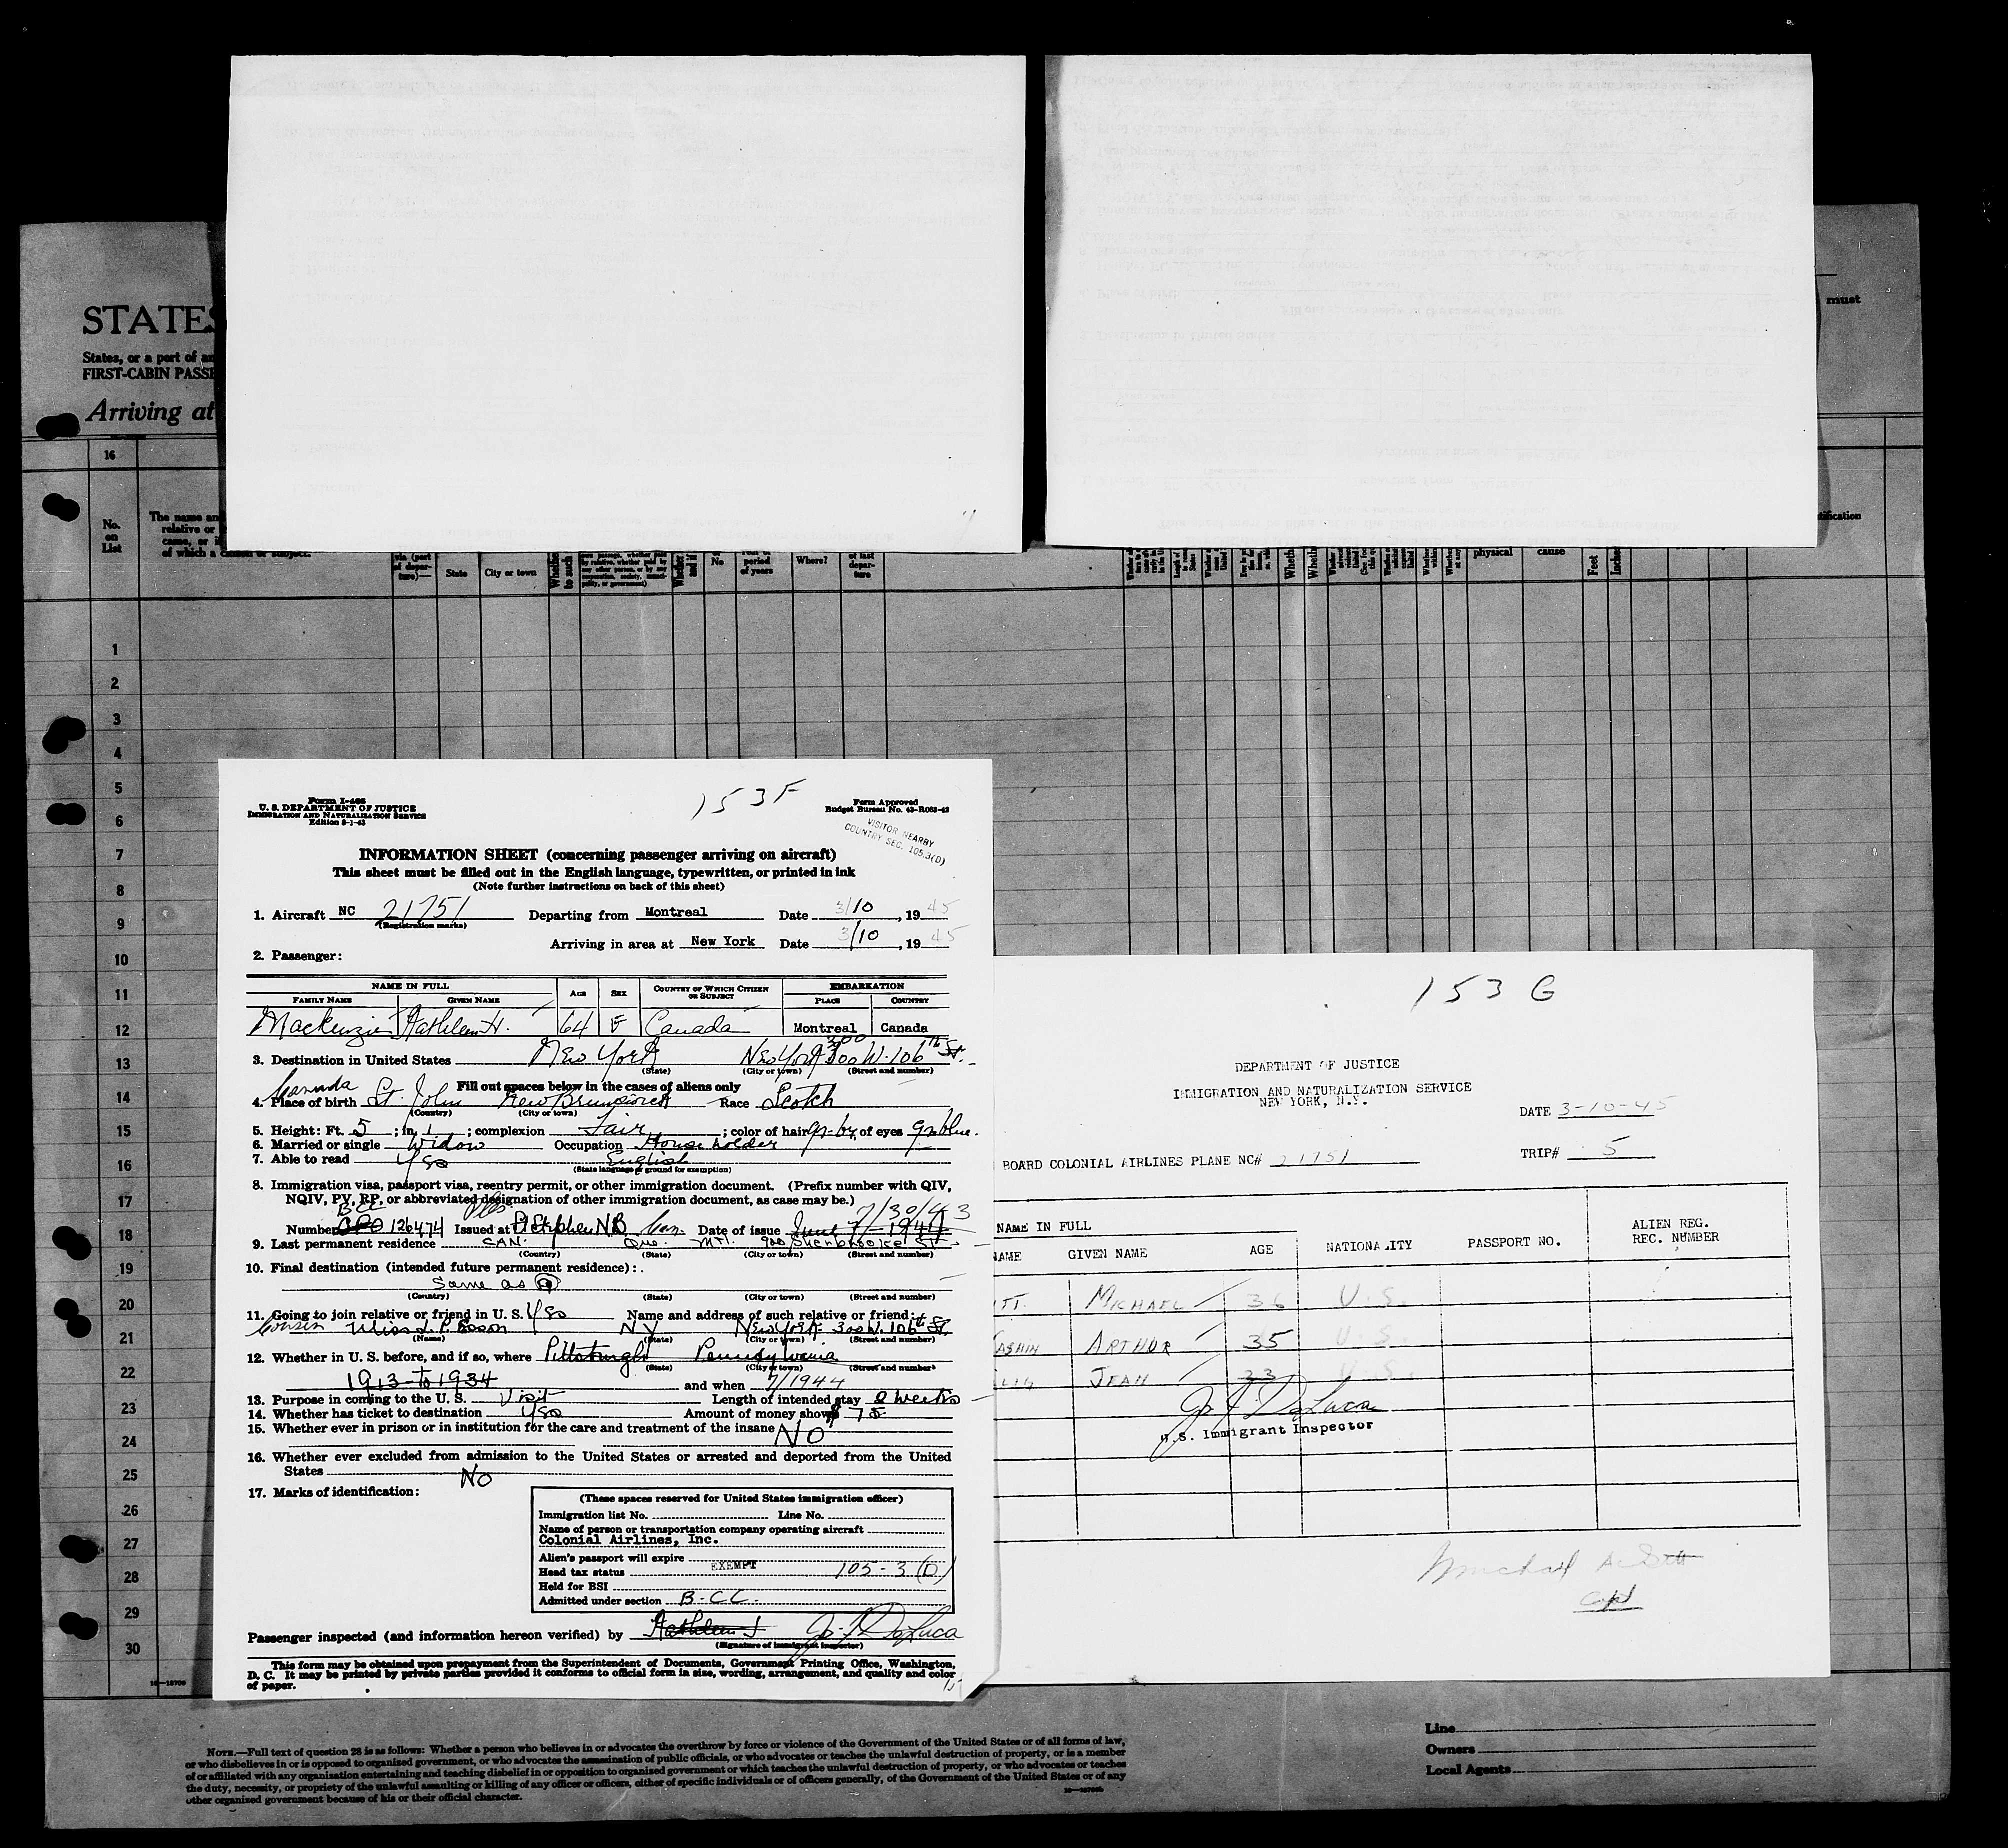 STATES
States, or a port of an
FIRST-CABIN PASSE
Arriving at
must
16
No.
on
List
The name an
relative or
came, or i
of which a
State
City or town
No
period
of years
Where?
of last
depar-
ture
physical
cause
Feet
Inches
1
2
3
4
5
6
7
8
9
10
11
12
13
14
15
16
17
18
19
20
21
22
23
24
25
26
27
28
29
30
153F
Form I-466
U. S. DEPARTMENT OF JUSTICE
IMMIGRATION AND NATURALIZATION SERVICE
Edition 8-1-43
Form Approved
Budget Bureau No. 43-R083-43
VISITOR NEARBY
COUNTRY SEC. 105.3(D)
INFORMATION SHEET (concerning passenger arriving on aircraft)
This sheet must be filled out in the English language, typewritten, or printed in ink
(Note further instructions on back of this sheet)
1. Aircraft NC 21751 Departing from Montreal Date 3/10, 1945
(Registration marks)
Arriving in area at New York Date 3/10, 1945
2. Passenger:
NAME IN FULL AGE SEX COUNTRY OF WHICH CITIZEN OR SUBJECT EMBARKATION
FAMILY NAME GIVEN NAME PLACE COUNTRY
Mackenzie Kathleen H. 64 F Canada Montreal Canada
3. Destination in United States New York New York 300 W. 106th St.
(State) (City or town) (Street and number)
Fill out spaces below in the cases of aliens only
4. Place of birth Canada St. John New Brunswick Race Scotch
(Country) (City or town)
5. Height: Ft. 5; in. 1; complexion Fair; color of hair gr-br; of eyes gr blue.
6. Married or single Widow Occupation House holder
7. Able to read Yes English
(State language or ground for exemption)
8. Immigration visa, passport visa, reentry permit, or other immigration document. (Prefix number with QIV,
NQIV, PV, RP, or abbreviated designation of other immigration document, as case may be.)
7/30/43
Number BCC 126474 Issued at St Stephen NB Can. Date of issue June 7-1944
9. Last permanent residence CAN. Que. Mtl. 900 Sherbrooke St
(Country) (State) (City or town) (Street and number)
10. Final destination (intended future permanent residence):
Same as 9
(Country) (State) (City or town) (Street and number)
11. Going to join relative or friend in U. S. Yes Name and address of such relative or friend:
Cousin Miss L. P. Esson NY New York 300 W. 106th St.
(Name) (State) (City or town) (Street and number)
12. Whether in U. S. before, and if so, where Pittsburgh Pennsylvania
(State) (City or town) (Street and number)
1913 to 1934 and when 7/1944
13. Purpose in coming to the U. S. Visit Length of intended stay 2 weeks
14. Whether has ticket to destination Yes Amount of money shown $ 75
15. Whether ever in prison or in institution for the care and treatment of the insane NO
16. Whether ever excluded from admission to the United States or arrested and deported from the United
States No
17. Marks of identification:
(These spaces reserved for United States immigration officer)
Immigration list No. Line No.
Name of person or transportation company operating aircraft
Colonial Airlines, Inc.
Alien's passport will expire
Head tax status EXEMPT 105-3 (D)
Held for BSI
Admitted under section B-CC.
Passenger inspected (and information hereon verified) by Kathleen J. F. DeLuca
(Signature of immigrant inspector)
This form may be obtained upon prepayment from the Superintendent of Documents, Government Printing Office, Washington,
D. C. It may be printed by private parties provided it conforms to official form in size, wording, arrangement, and quality and color
of paper.
153 G
DEPARTMENT OF JUSTICE
IMMIGRATION AND NATURALIZATION SERVICE
NEW YORK, N.Y.
DATE 3-10-45
BOARD COLONIAL AIRLINES PLANE NC# 21751 TRIP# 5
NAME IN FULL
NAME GIVEN NAME AGE NATIONALITY PASSPORT NO. ALIEN REG. REC. NUMBER
TT. MICHAEL 36 U.S.
ASHIN ARTHUR 35 U.S.
LIG JEAN 23 U.S.
J. F. DeLuca
U.S. Immigrant Inspector
Michael A. Sott
Capt
Line
Owners
Local Agents
NOTE.—Full text of question 28 is as follows: Whether a person who believes in or advocates the overthrow by force or violence of the Government of the United States or of all forms of law,
or who disbelieves in or is opposed to organized government, or who advocates the assassination of public officials, or who advocates or teaches the unlawful destruction of property, or is a member
of or affiliated with any organization entertaining and teaching disbelief in or opposition to organized government or which teaches the unlawful destruction of property, or who advocates or teaches
the duty, necessity, or propriety of the unlawful assaulting or killing of any officer or officers, either of specific individuals or of officers generally, of the Government of the United States or of any
other organized government because of his or their official character.